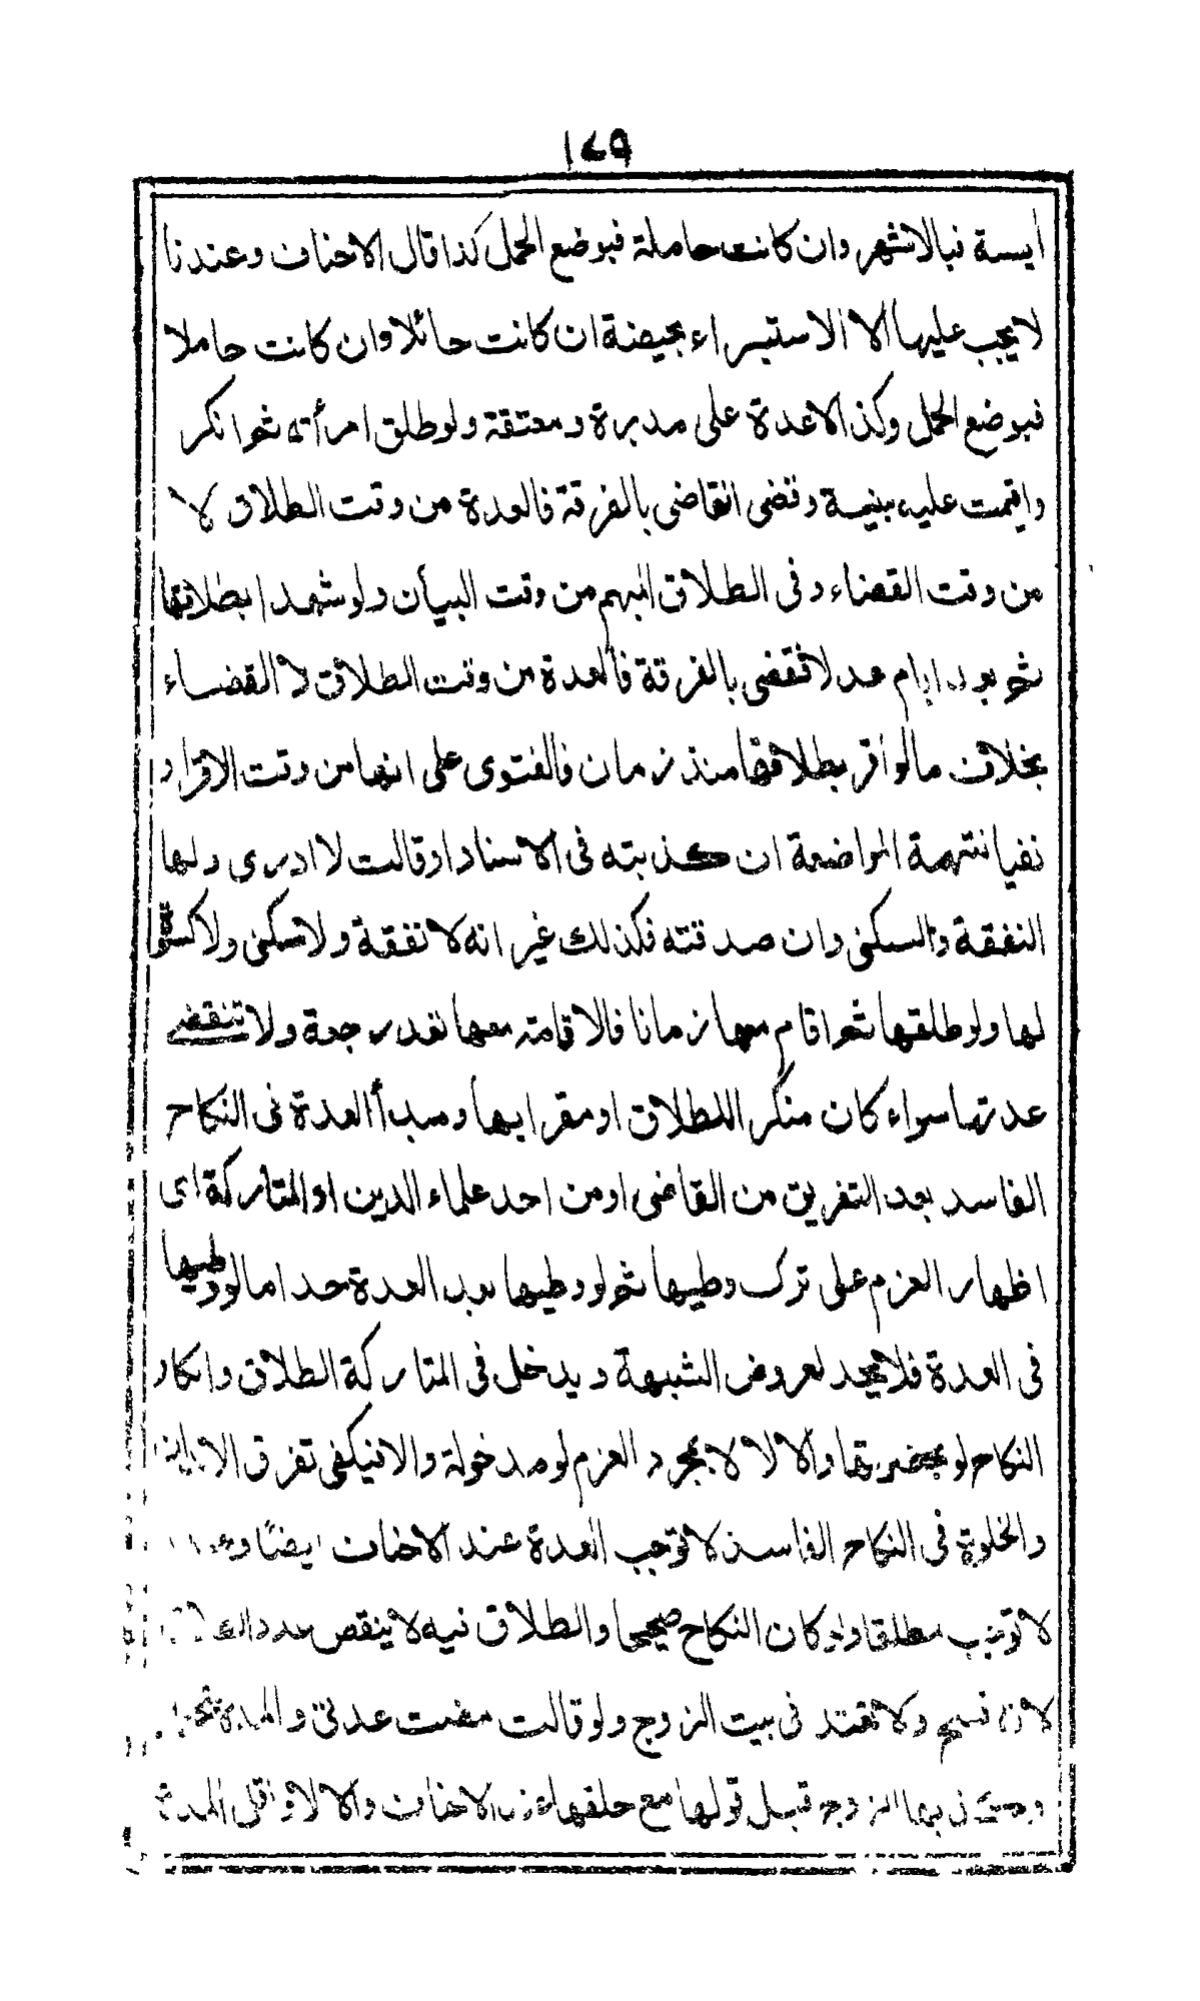 ١٤٩
ايسة فبالاشهر وان كانت حاملة فبوضع الحمل كذا قال الاحناف وعندنا
لا يجب عليها الا الاستبراء بحيضة ان كانت حائلا وان كانت حاملا
فبوضع الحمل وكذا لاعدة على مدبرة ومعتقة ولو طلق امرأته ثم انكر
واقيمت عليه بينة وقضى القاضى بالفرقة فالعدة من وقت الطلاق لا
من وقت القضاء وفى الطلاق المبهم من وقت البيان ولو شهدا بطلاقها
ثم بعد ايام عدلا فقضى بالفرقة فالعدة من وقت الطلاق لا القضاء
بخلاف مالو اقر بطلاقها منذ زمان فالفتوى على انها من وقت الاقرار
نفيا لتهمة المواضعة ان كذبته فى الاسناد اوقالت لا ادرى ولها
النفقة والسكنى وان صدقته فكذلك غير انه لا نفقة ولا سكنى ولا كسوة
لها ولو طلقها ثم اقام معها زمانا فالاقامة معها تعد رجعة ولا تنقضى
عدتها سواء كان منكر اللطلاق او مقرا بها ومبدأ العدة فى النكاح
الفاسد بعد التفريق من القاضى اومن احد علماء الدين او المتاركة اى
اظهار العزم على ترك وطيها ثم لو وطيها بعد العدة حد اما لو وطيها
فى العدة فلا يحد لعروض الشبهة ويدخل فى المتاركة الطلاق وانكار
النكاح لو بحضرتها والا لا لا بمجرد العزم لو مدخولة والا فيكفى تفرق الابدان
والخلوة فى النكاح الفاسد لا توجب العدة عند الاحناف ايضا
لا توجب مطلقا ولو كان النكاح صحيحا والطلاق فيه لا ينقص عدد
لانه فسخ ولا تعتد فى بيت الزوج ولو قالت مضت عدتى والمدة
الزوج قبل قولها مع حلفها عند الاحناف والا لا واقل المدة